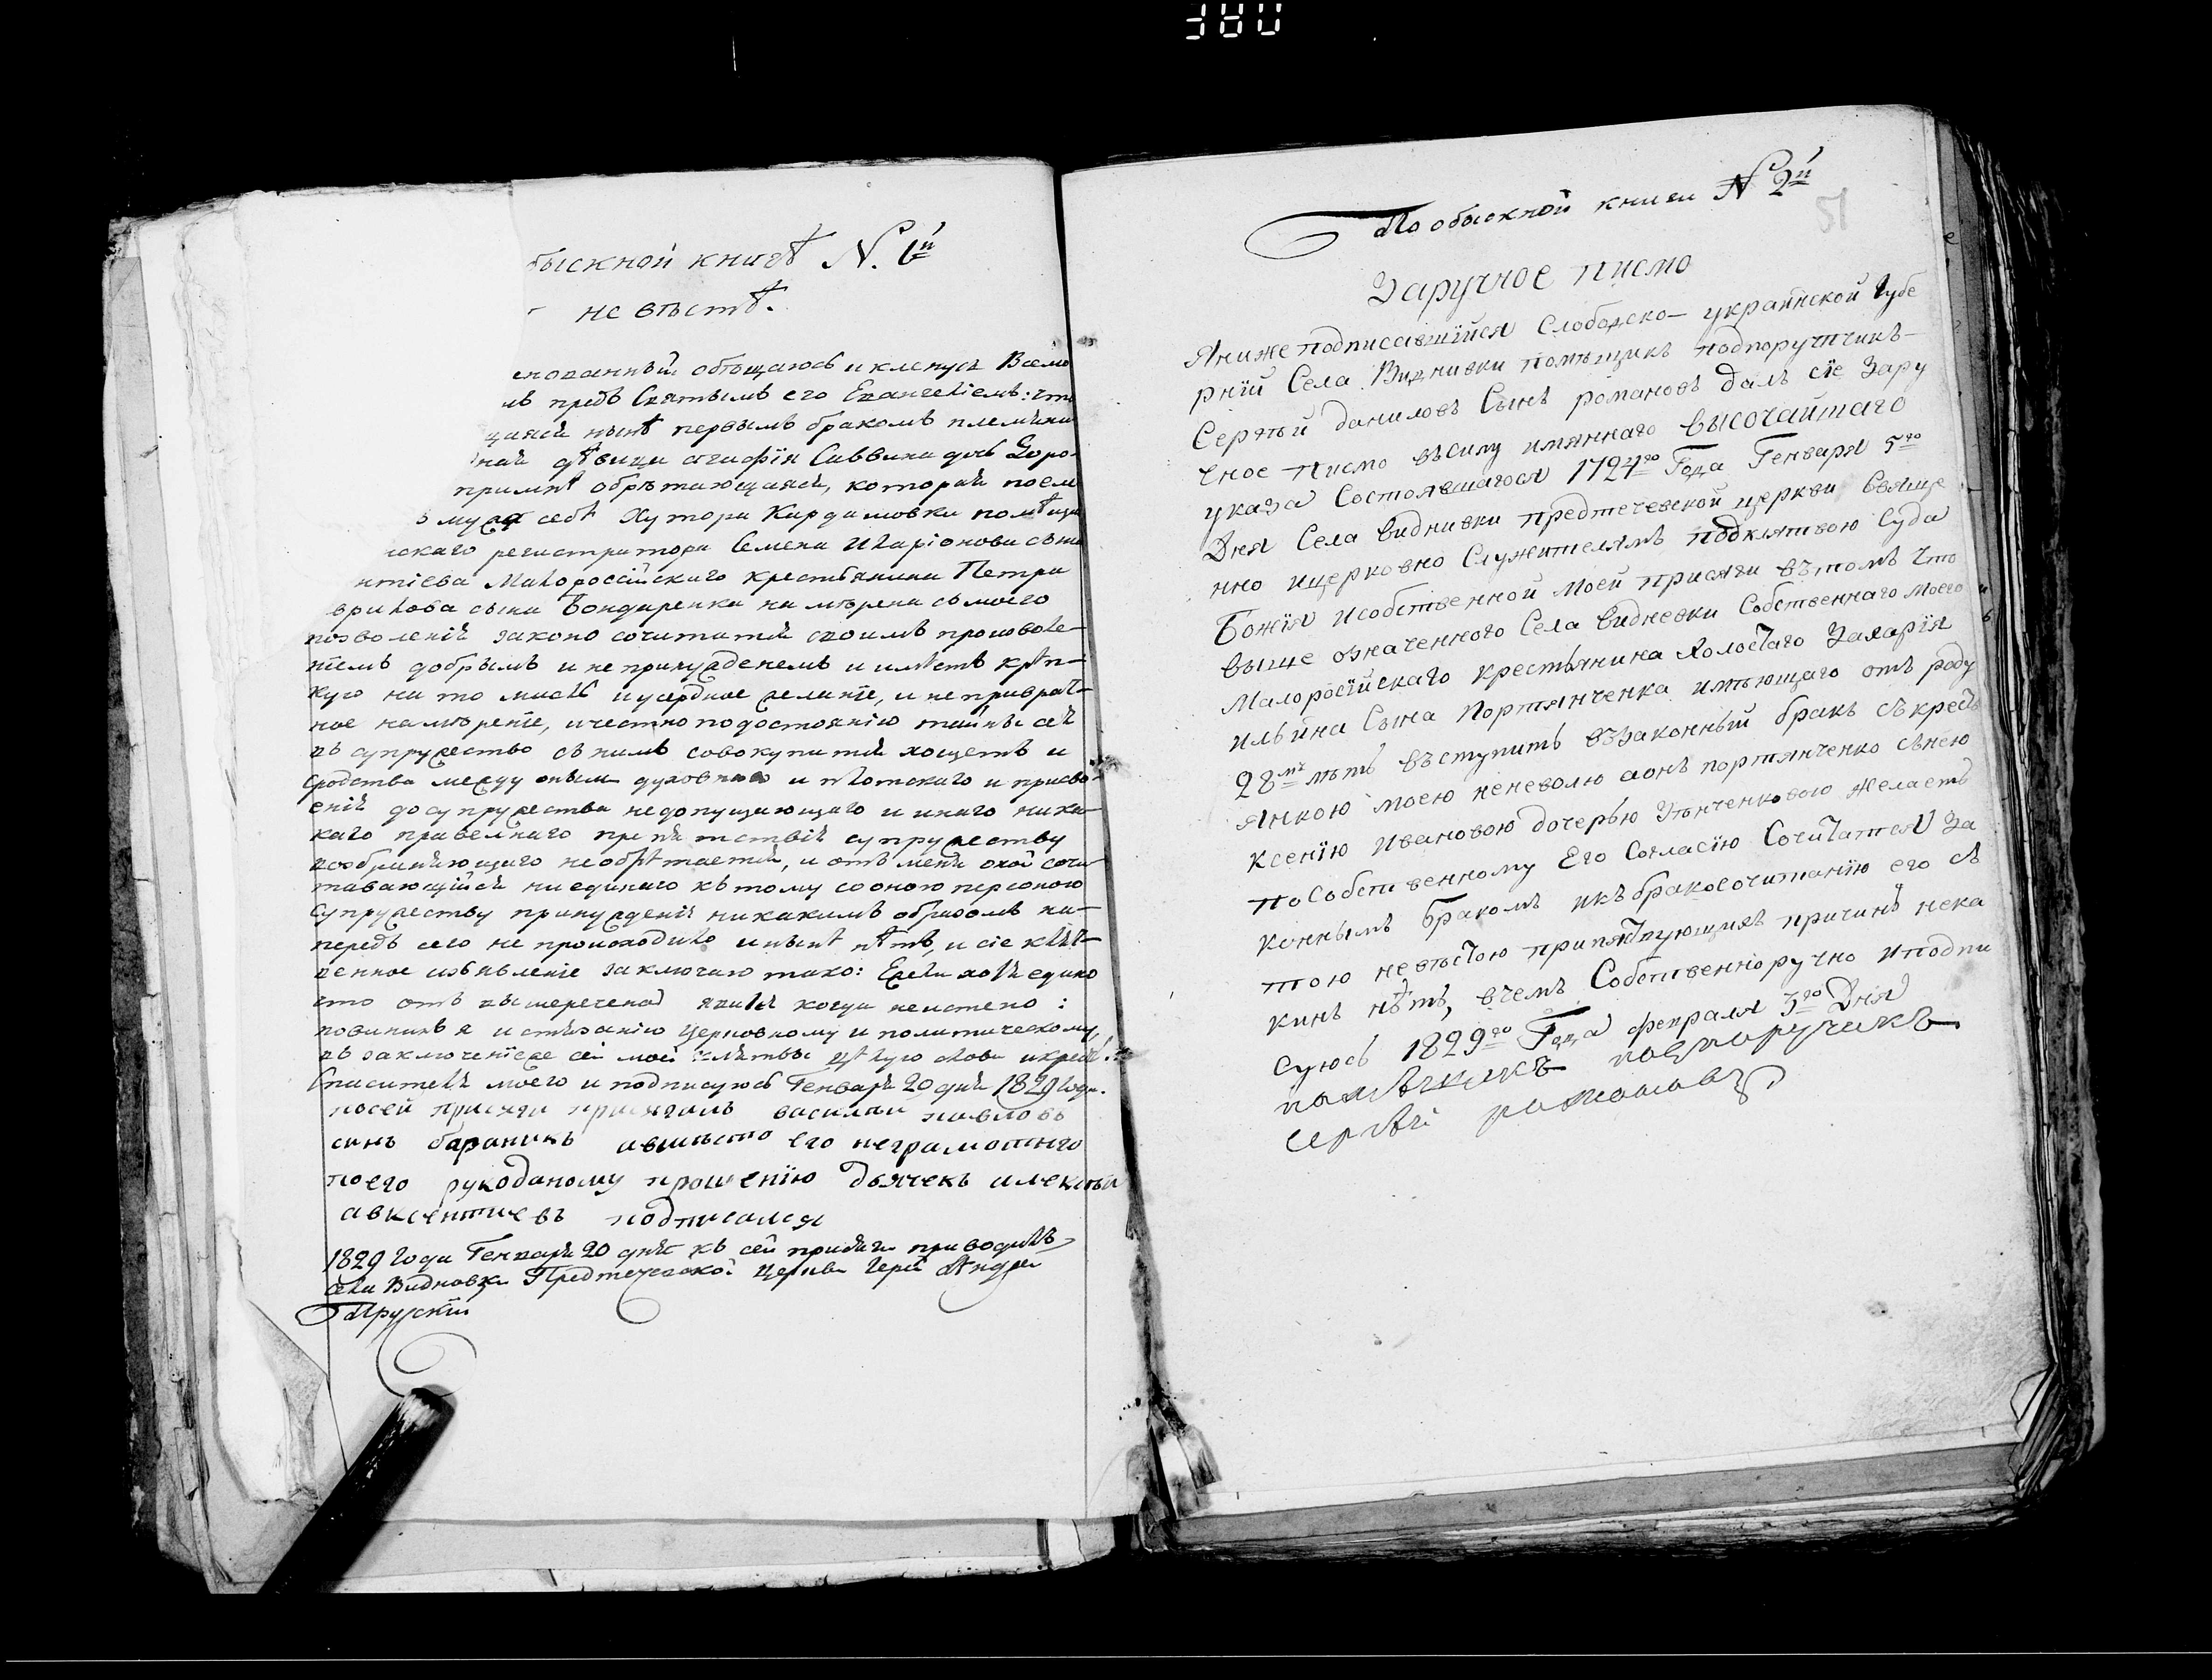 380
быскной книгѣ N. 1й
невѣстѣ.
енованный обѣщаюсь и кленусь Всемо
мъ предъ Святымъ его Евангелiемъ: что
щаяся нынѣ первымъ бракомъ племянни
дѣвица агафiя Саввина дочь
обрѣтающаяся, которая поем
мужа себѣ Хутора Кардамовки помѣщи
скаго регистратора Семена Иларiонова сына
нтiева Малоросiйскаго крестьянина Петра
врилова сына Бондаренка намѣрена съ моего
позволенiя законо сочитатися своимъ произволе-
нiемъ добрымъ и не принужденемъ и имѣетъ крѣп-
кую на то мысль и усердное желанiе, и не приврат-
ное намѣренiе, и честно по достоянiю тайны сея
въ супружество съ нимъ совокупитися хощетъ и
сродства между оными духовнаго и плотскаго и присво-
енiя до супружества недопущающаго и инаго ника-
каго правелнаго препятствiя супружеству
возбраняющаго необрѣтается, и отъ меня окой сочи-
тавающiйся ни единаго къ тому со оною персоною
супружеству принужденiя никакимъ образомъ на-
передъ сего не происходило и нынѣ нѣтъ, и сiе клят-
венное изъявленiе заключаю тако: Ежели хотя едино
что отъ вышереченад явился когда неистено:
повиненъ я истязанiю Церковному и политическому,
въ заключенiеже сей моей клятвы цѣлую слова и крестъ
Спасителя моего и подписуюсь Генваря 20 дня 1829 года.
посей присяги присягалъ василий павловъ
синъ бараникъ авмѣсто его неграмотнго
поего рукоданому прошенїю дьячекъ алексѣй
авксентиевъ подписался
1829 Года Генваря 20 дня къ сей присяги приводилъ
села Видновки Предтечевской Церкви Iерей Андрей
По обыскной книги N 2й
51
Заручное писмо
Я ниже подписавшїйся Слободско-украинской Губе
рнїй Села Виднивки помѣщикъ подпоручтчикъ-
Сергѣй даниловъ Сынъ романовъ далъ сїе Зару
чное писмо въсилу имяннаго высочайшаго
указа Состоявшагося 1724го Года Генваря 5го
Дня Села видневки предтечевской церкви Свяще
нно ицерковно Служителямъ подклятвою Суда
Божїя исобственной моей присяги вътомъ что
выше означенного Села видневки Собственнаго моего
Малоросїйскаго крестьянина Холостаго Захарїя
ильина Сына Портянченка имѣющаго отъ роду
28мъ лѣтъ въступить взаконный бракъ съ крест
янкою моею неневолю аонъ портянченко снею
ксенїю ивановою дочерью желаетъ
поСобственному Его Согласїю Сочитатся За
коннымъ бракомъ икъбракосочитанїю его съ
тою невѣстою припятствующихъ причинъ ника
кихъ нѣтъ, вчемъ Собственноручно иподпи
суюсь 1829го Года февраля 3го Дня
помѣщикъ подпоручикъ
сергѣй романовъ